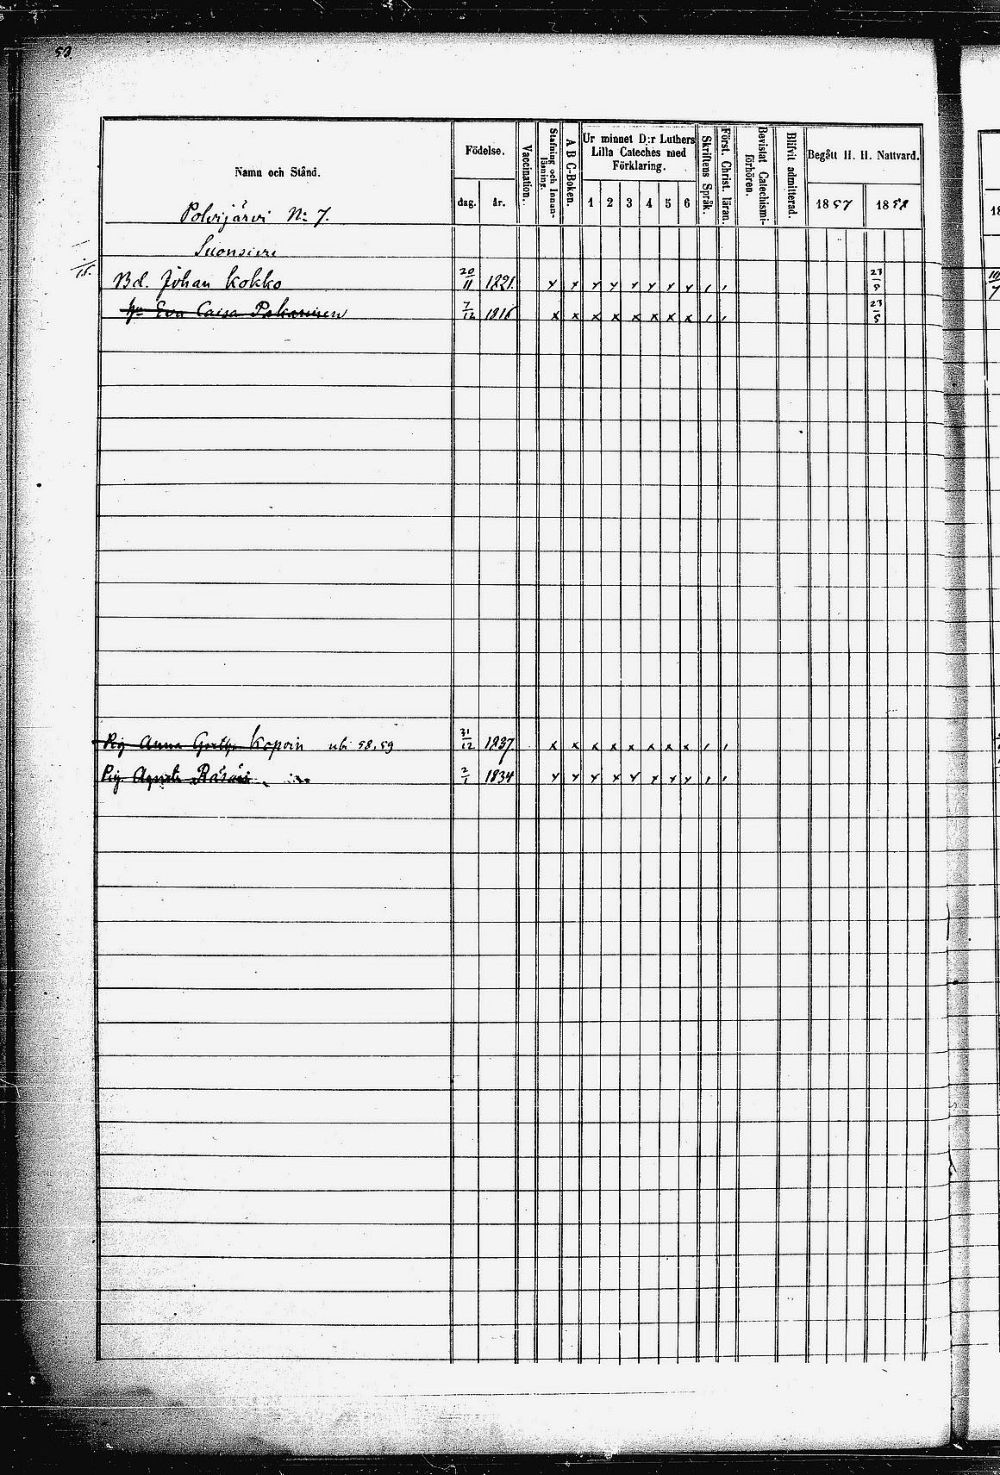 53.
Namn och Stånd.
Födelse.
dag.
år.
Vaccination.
Stafning och Innan-
läsning.
A B C-Boken.
Ur minnet D:r Luthers
Lilla Cateches med
Förklaring.
1 2 3 4 5 6
Skriftens Språk.
Först. Christ. läran.
Bevistat Catechismi-
förhören.
Blifvit admitterad.
Begått H. H. Nattvard.
1857
1858
Polvijärvi No 7.
Bd. Johan Kokko 20/11 1821. x x x x x x x x , , 23/5
Eva Caisa 7/12 1816 x x x x x x x x , , 23/5
Pig Anna Kopoin ubi 58,59 31/12 1837 x x x x x x x x , ,
Pig Räsäi 2/1 1834 x x x x x x x x , ,